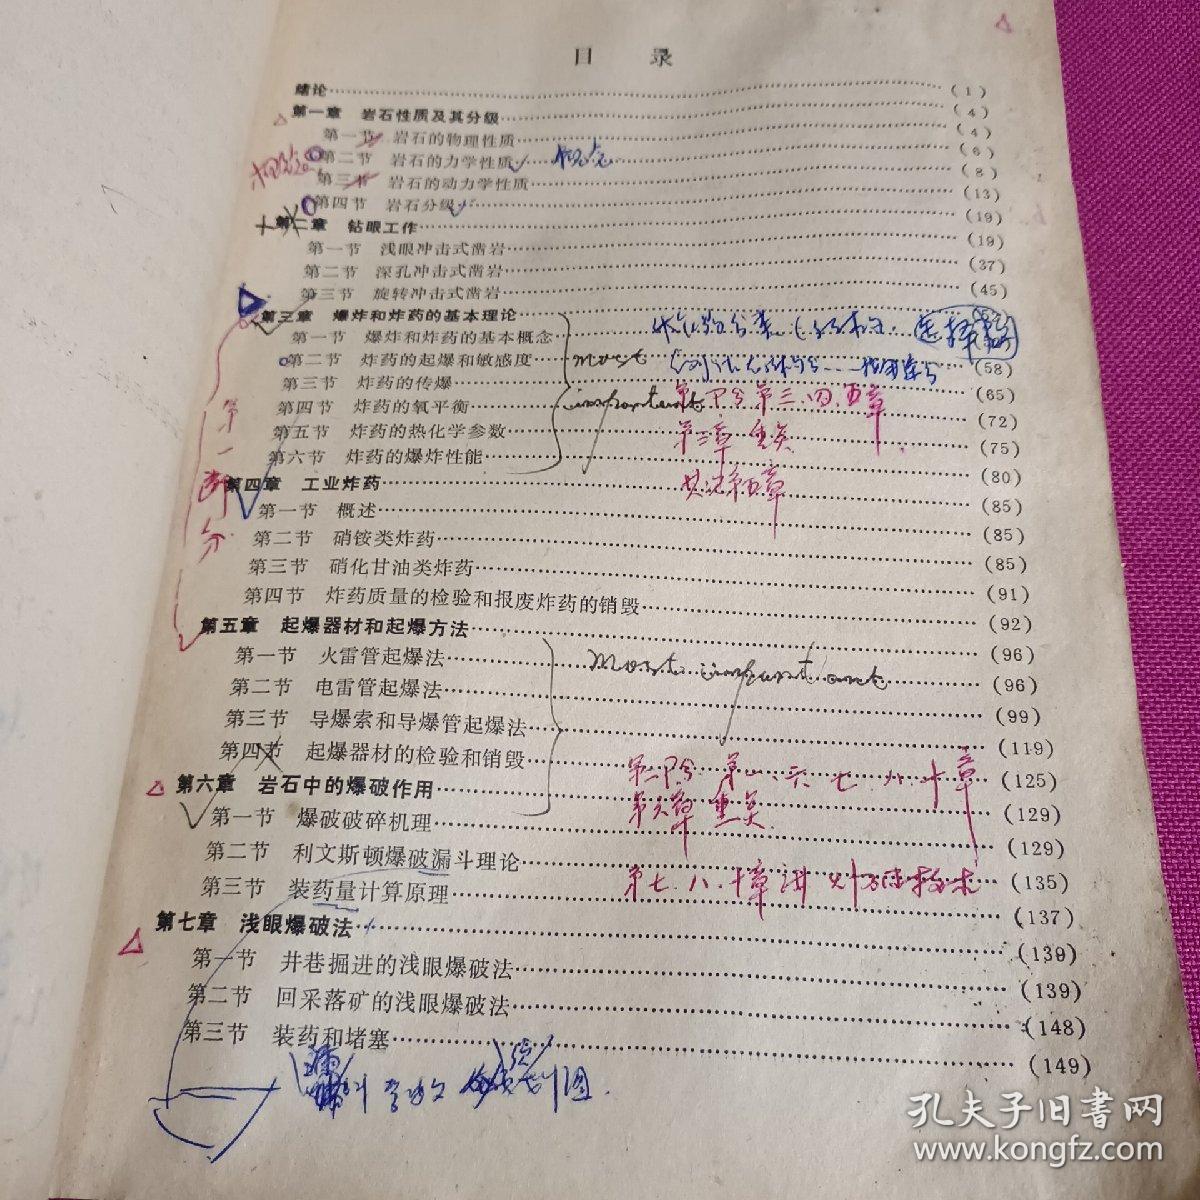 目 录
绪论……(1)
第一章 岩石性质及其分级……(4)
第一节 岩石的物理性质……(4)
第二节 岩石的力学性质……(6)
概念
第三节 岩石的动力学性质……(8)
第四节 岩石分级……(13)
第二章 钻眼工作……(19)
第一节 浅眼冲击式凿岩……(19)
第二节 深孔冲击式凿岩……(37)
第三节 旋转冲击式凿岩……(45)
第三章 爆炸和炸药的基本理论
第一节 爆炸和炸药的基本概念
第二节 炸药的起爆和敏感度……(58)
most
第三节 炸药的传爆……(65)
第四节 炸药的氧平衡……(72)
important
第三、四、五章
第五节 炸药的热化学参数……(75)
第三章 重点
第六节 炸药的爆炸性能……(80)
第四章 工业炸药……(85)
第五章
第一节 概述……(85)
第二节 硝铵类炸药……(85)
第三节 硝化甘油类炸药……(91)
第四节 炸药质量的检验和报废炸药的销毁……(92)
第五章 起爆器材和起爆方法……(96)
第一节 火雷管起爆法……(96)
most important
第二节 电雷管起爆法……(99)
第三节 导爆索和导爆管起爆法……(119)
第四节 起爆器材的检验和销毁……(125)
第六章 岩石中的爆破作用……(129)
第一节 爆破破碎机理……(129)
第六章 重点
第二节 利文斯顿爆破漏斗理论……(135)
第三节 装药量计算原理……(137)
第七、八、十章讲
第七章 浅眼爆破法……(139)
第一节 井巷掘进的浅眼爆破法……(139)
第二节 回采落矿的浅眼爆破法……(148)
第三节 装药和堵塞……(149)
第一部分
孔夫子旧书网
www.kongfz.com